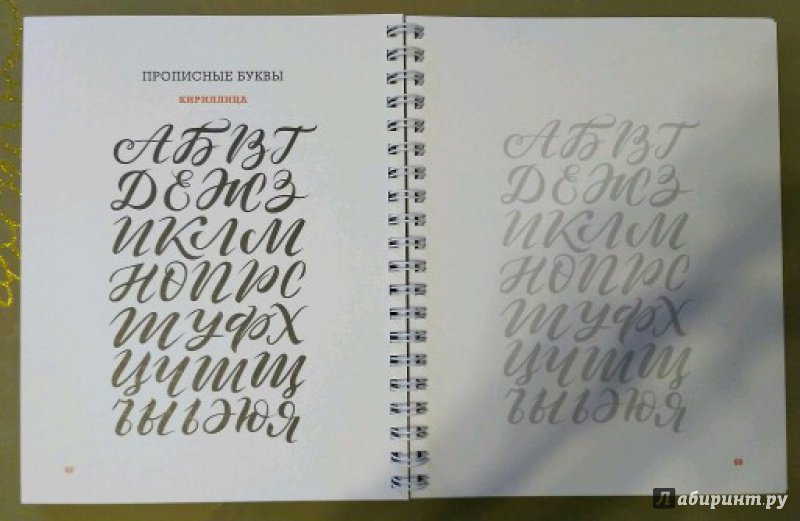 ПРОПИСНЫЕ БУКВЫ
КИРИЛЛИЦА
АБВГ
ДЕЖЗ
ИКЛМ
НОПРС
ТУФХ
ЦЧШЩ
ЪЫЬЭЮЯ
АБВГ
ДЕЖЗ
ИКЛМ
НОПРС
ТУФХ
ЦЧШЩ
ЪЫЬЭЮЯ
Лабиринт.ру